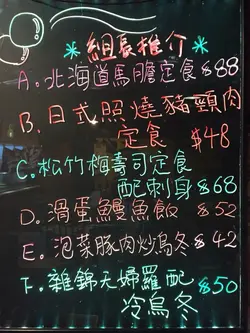 *組長推介*
A. 北海道馬膽定食 $88
B. 日式照燒豬頸肉
定食 $48
C. 松竹梅壽司定食
配刺身 $68
D. 滑蛋鰻魚飯 $52
E. 泡菜豚肉炒烏冬 $42
F. 雜錦天婦羅配 $50
冷烏冬